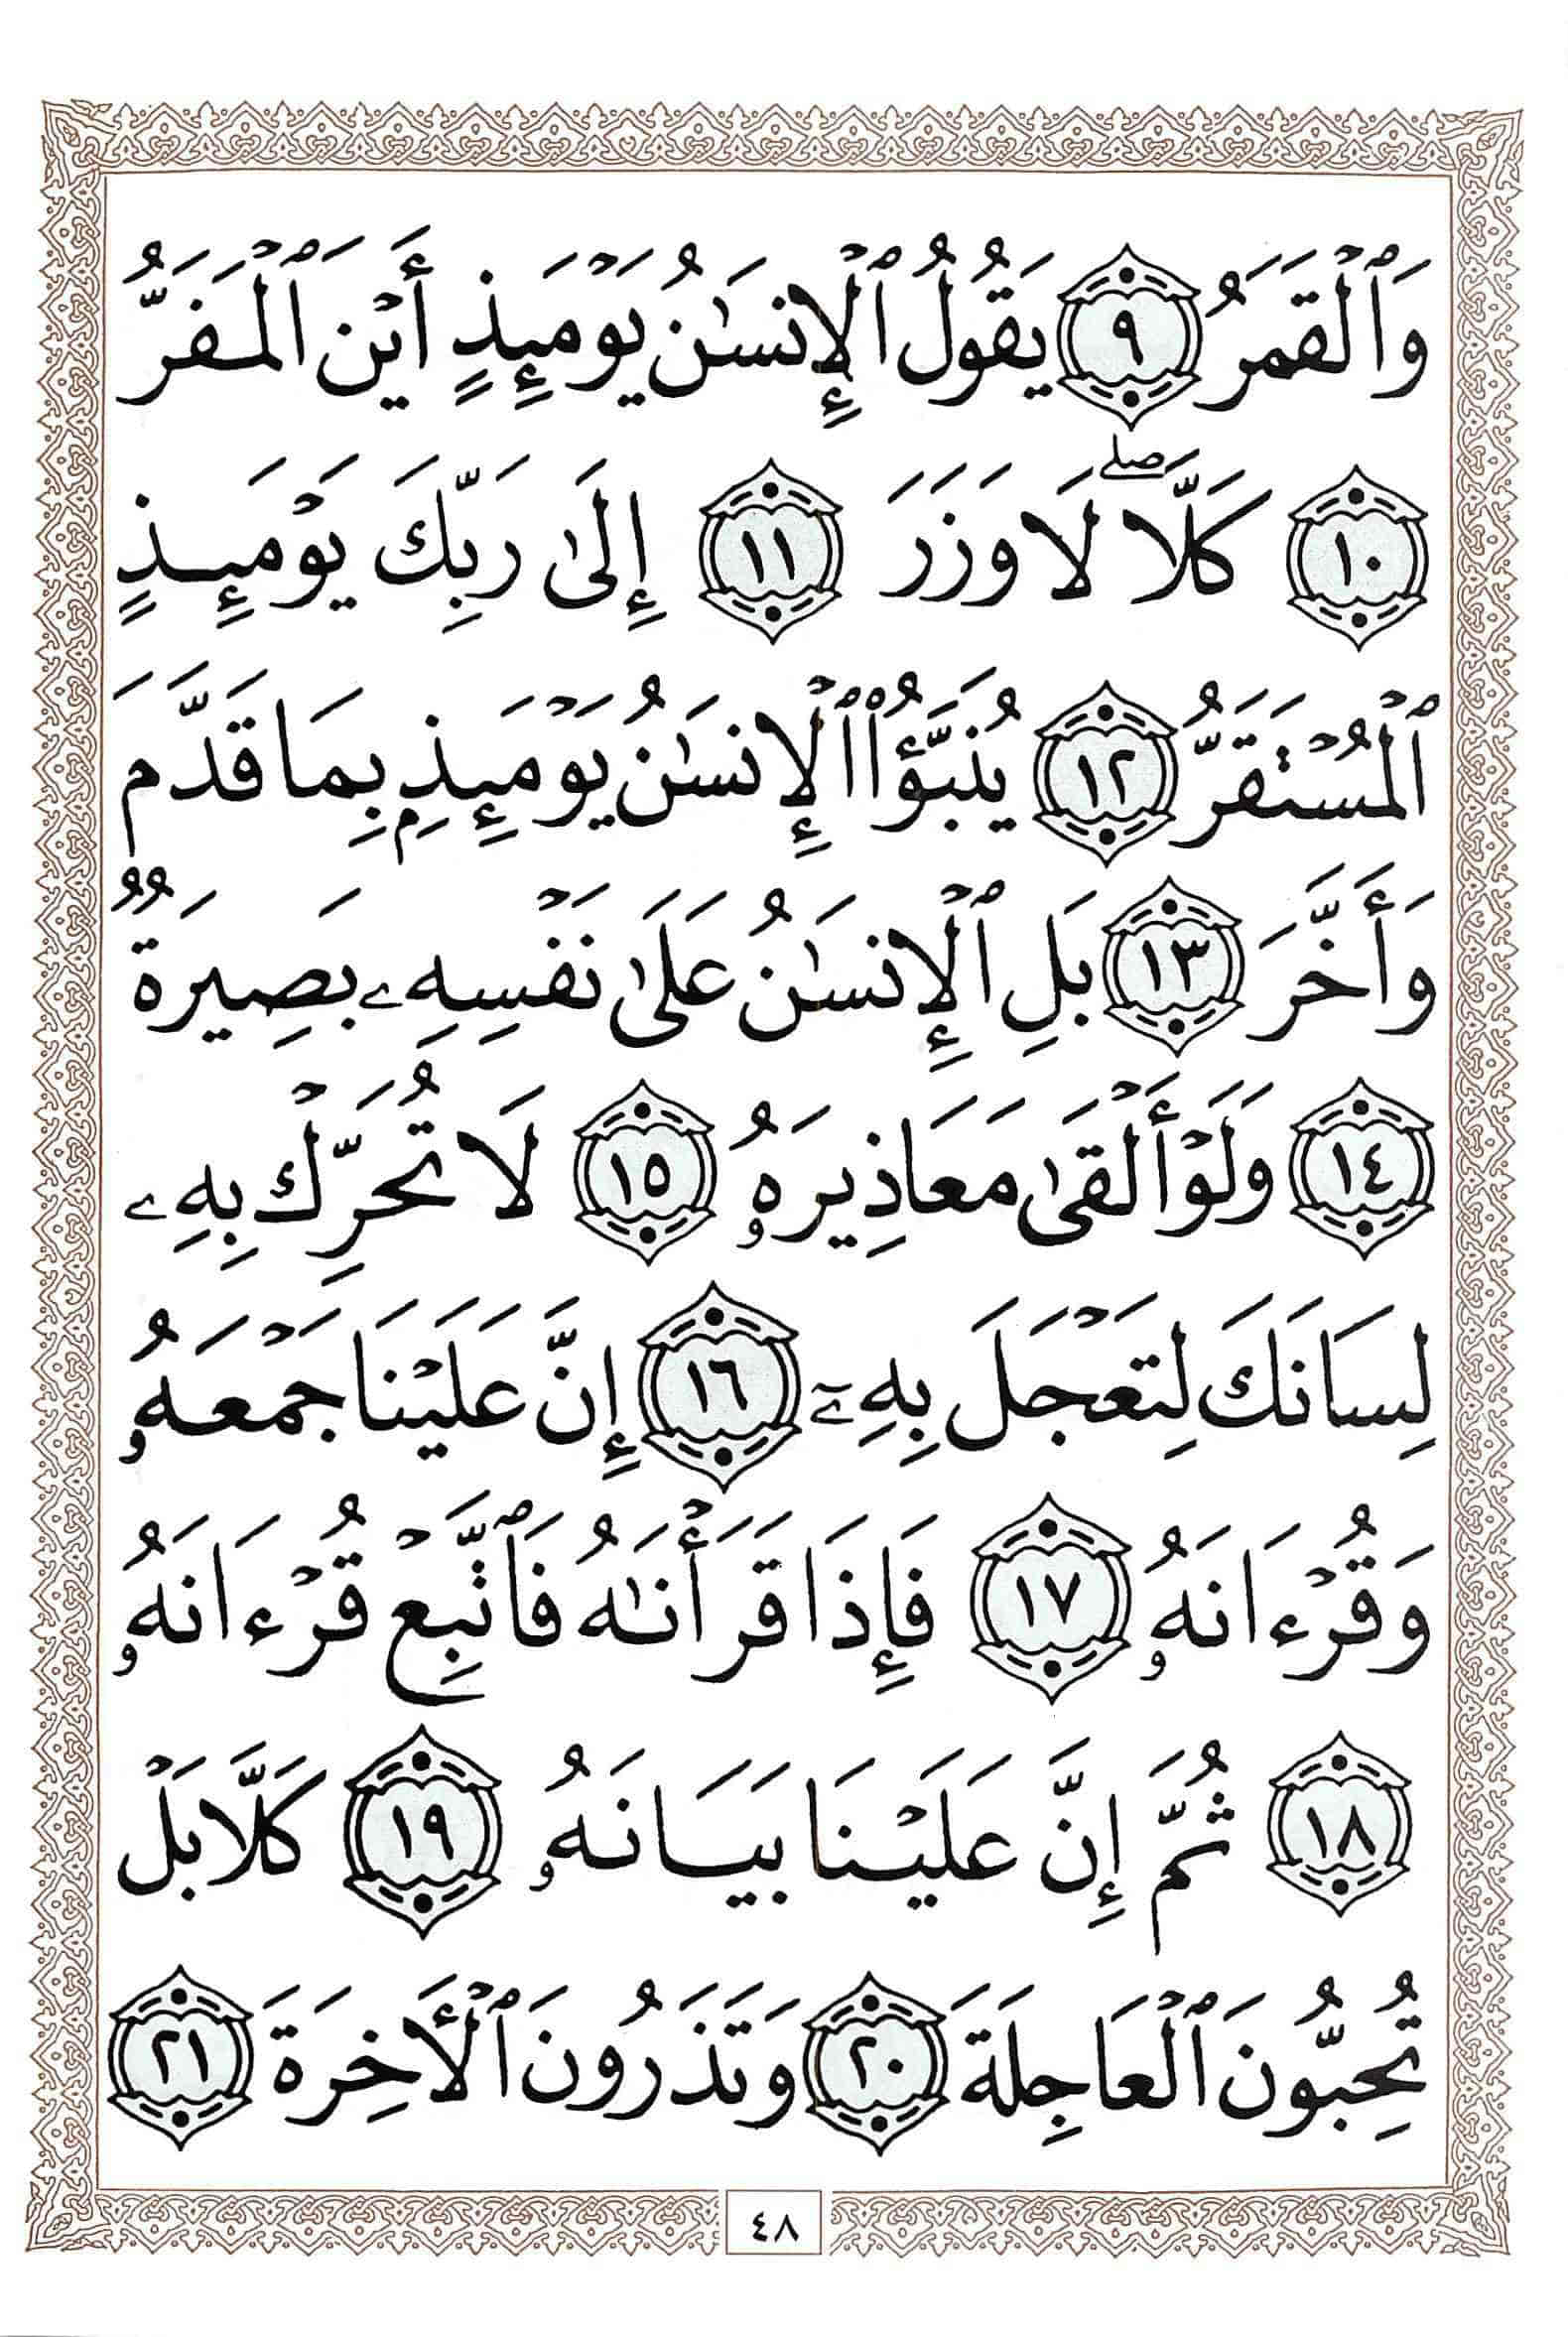 وَٱلۡقَمَرُ ٩ يَقُولُ ٱلۡإِنسَٰنُ يَوۡمَئِذٍ أَيۡنَ ٱلۡمَفَرُّ
١٠ كَلَّاۖ لَا وَزَرَ ١١ إِلَىٰ رَبِّكَ يَوۡمَئِذٍ
ٱلۡمُسۡتَقَرُّ ١٢ يُنَبَّؤُاْ ٱلۡإِنسَٰنُ يَوۡمَئِذِۭ بِمَا قَدَّمَ
وَأَخَّرَ ١٣ بَلِ ٱلۡإِنسَٰنُ عَلَىٰ نَفۡسِهِۦ بَصِيرَةٞ
١٤ وَلَوۡ أَلۡقَىٰ مَعَاذِيرَهُۥ ١٥ لَا تُحَرِّكۡ بِهِۦ
لِسَانَكَ لِتَعۡجَلَ بِهِۦٓ ١٦ إِنَّ عَلَيۡنَا جَمۡعَهُۥ
وَقُرۡءَانَهُۥ ١٧ فَإِذَا قَرَأۡنَٰهُ فَٱتَّبِعۡ قُرۡءَانَهُۥ
١٨ ثُمَّ إِنَّ عَلَيۡنَا بَيَانَهُۥ ١٩ كَلَّا بَلۡ
تُحِبُّونَ ٱلۡعَاجِلَةَ ٢٠ وَتَذَرُونَ ٱلۡأَخِرَةَ ٢١
٤٨